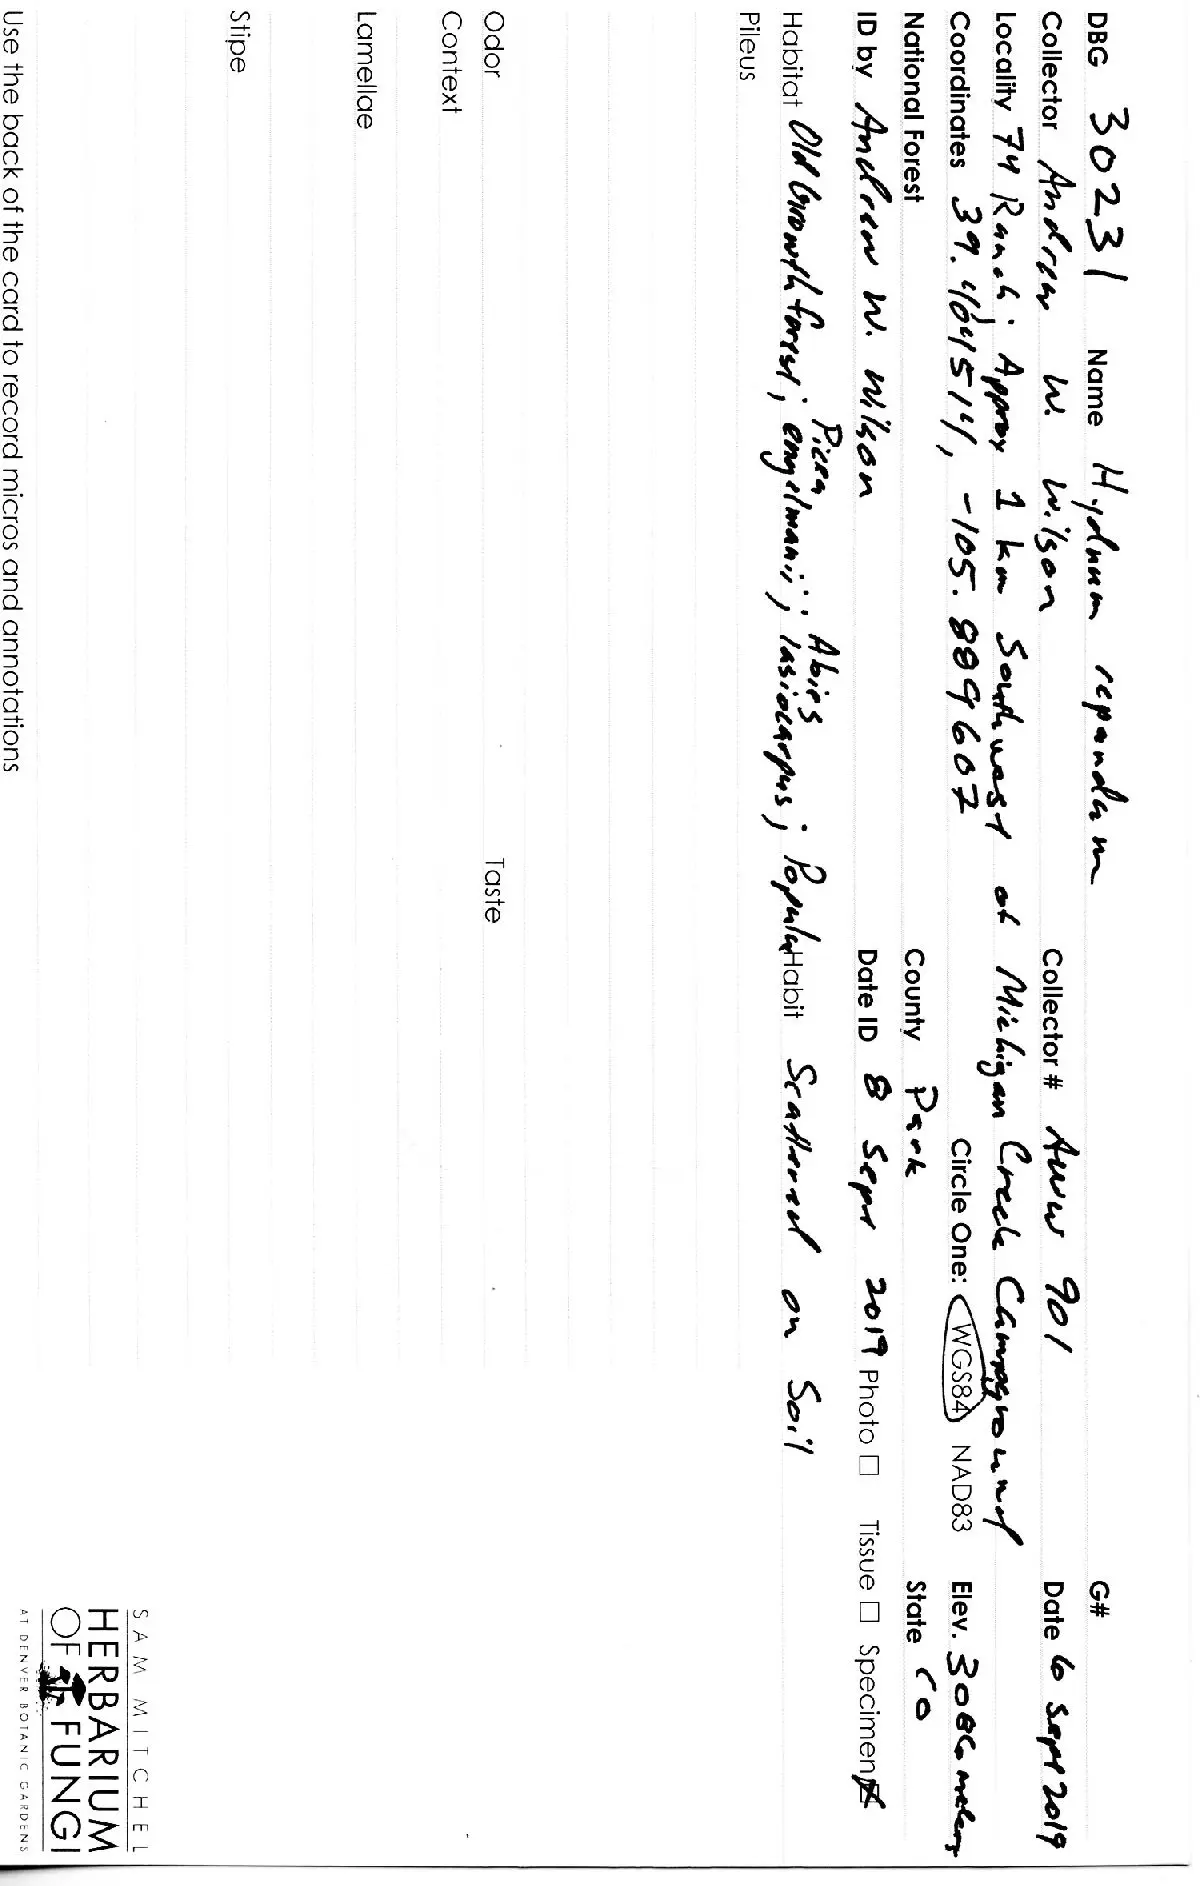 DBG 30231 Name Hydnum repandum G#
Collector Andrew W. Wilson Collector # AWW 901 Date 6 Sept 2019
Locality 74 Ranch; Approx 1 km Southwest of Michigan Creek Campground
Coordinates 39.404514, -105.889607 Circle One: WGS84 NAD83 Elev. 3086 meters
National Forest County Park State CO
ID by Andrew W. Wilson Date ID 8 Sept 2019 Photo □ Tissue □ Specimen ☒
Picea Abies
Habitat Old Growth forest; engelmanii; lasiocarpus; Populus Habit Scattered on Soil
Pileus
Odor Taste
Context
Lamellae
Stipe
Use the back of the card to record micros and annotations
SAM MITCHEL
HERBARIUM
OF FUNGI
AT DENVER BOTANIC GARDENS